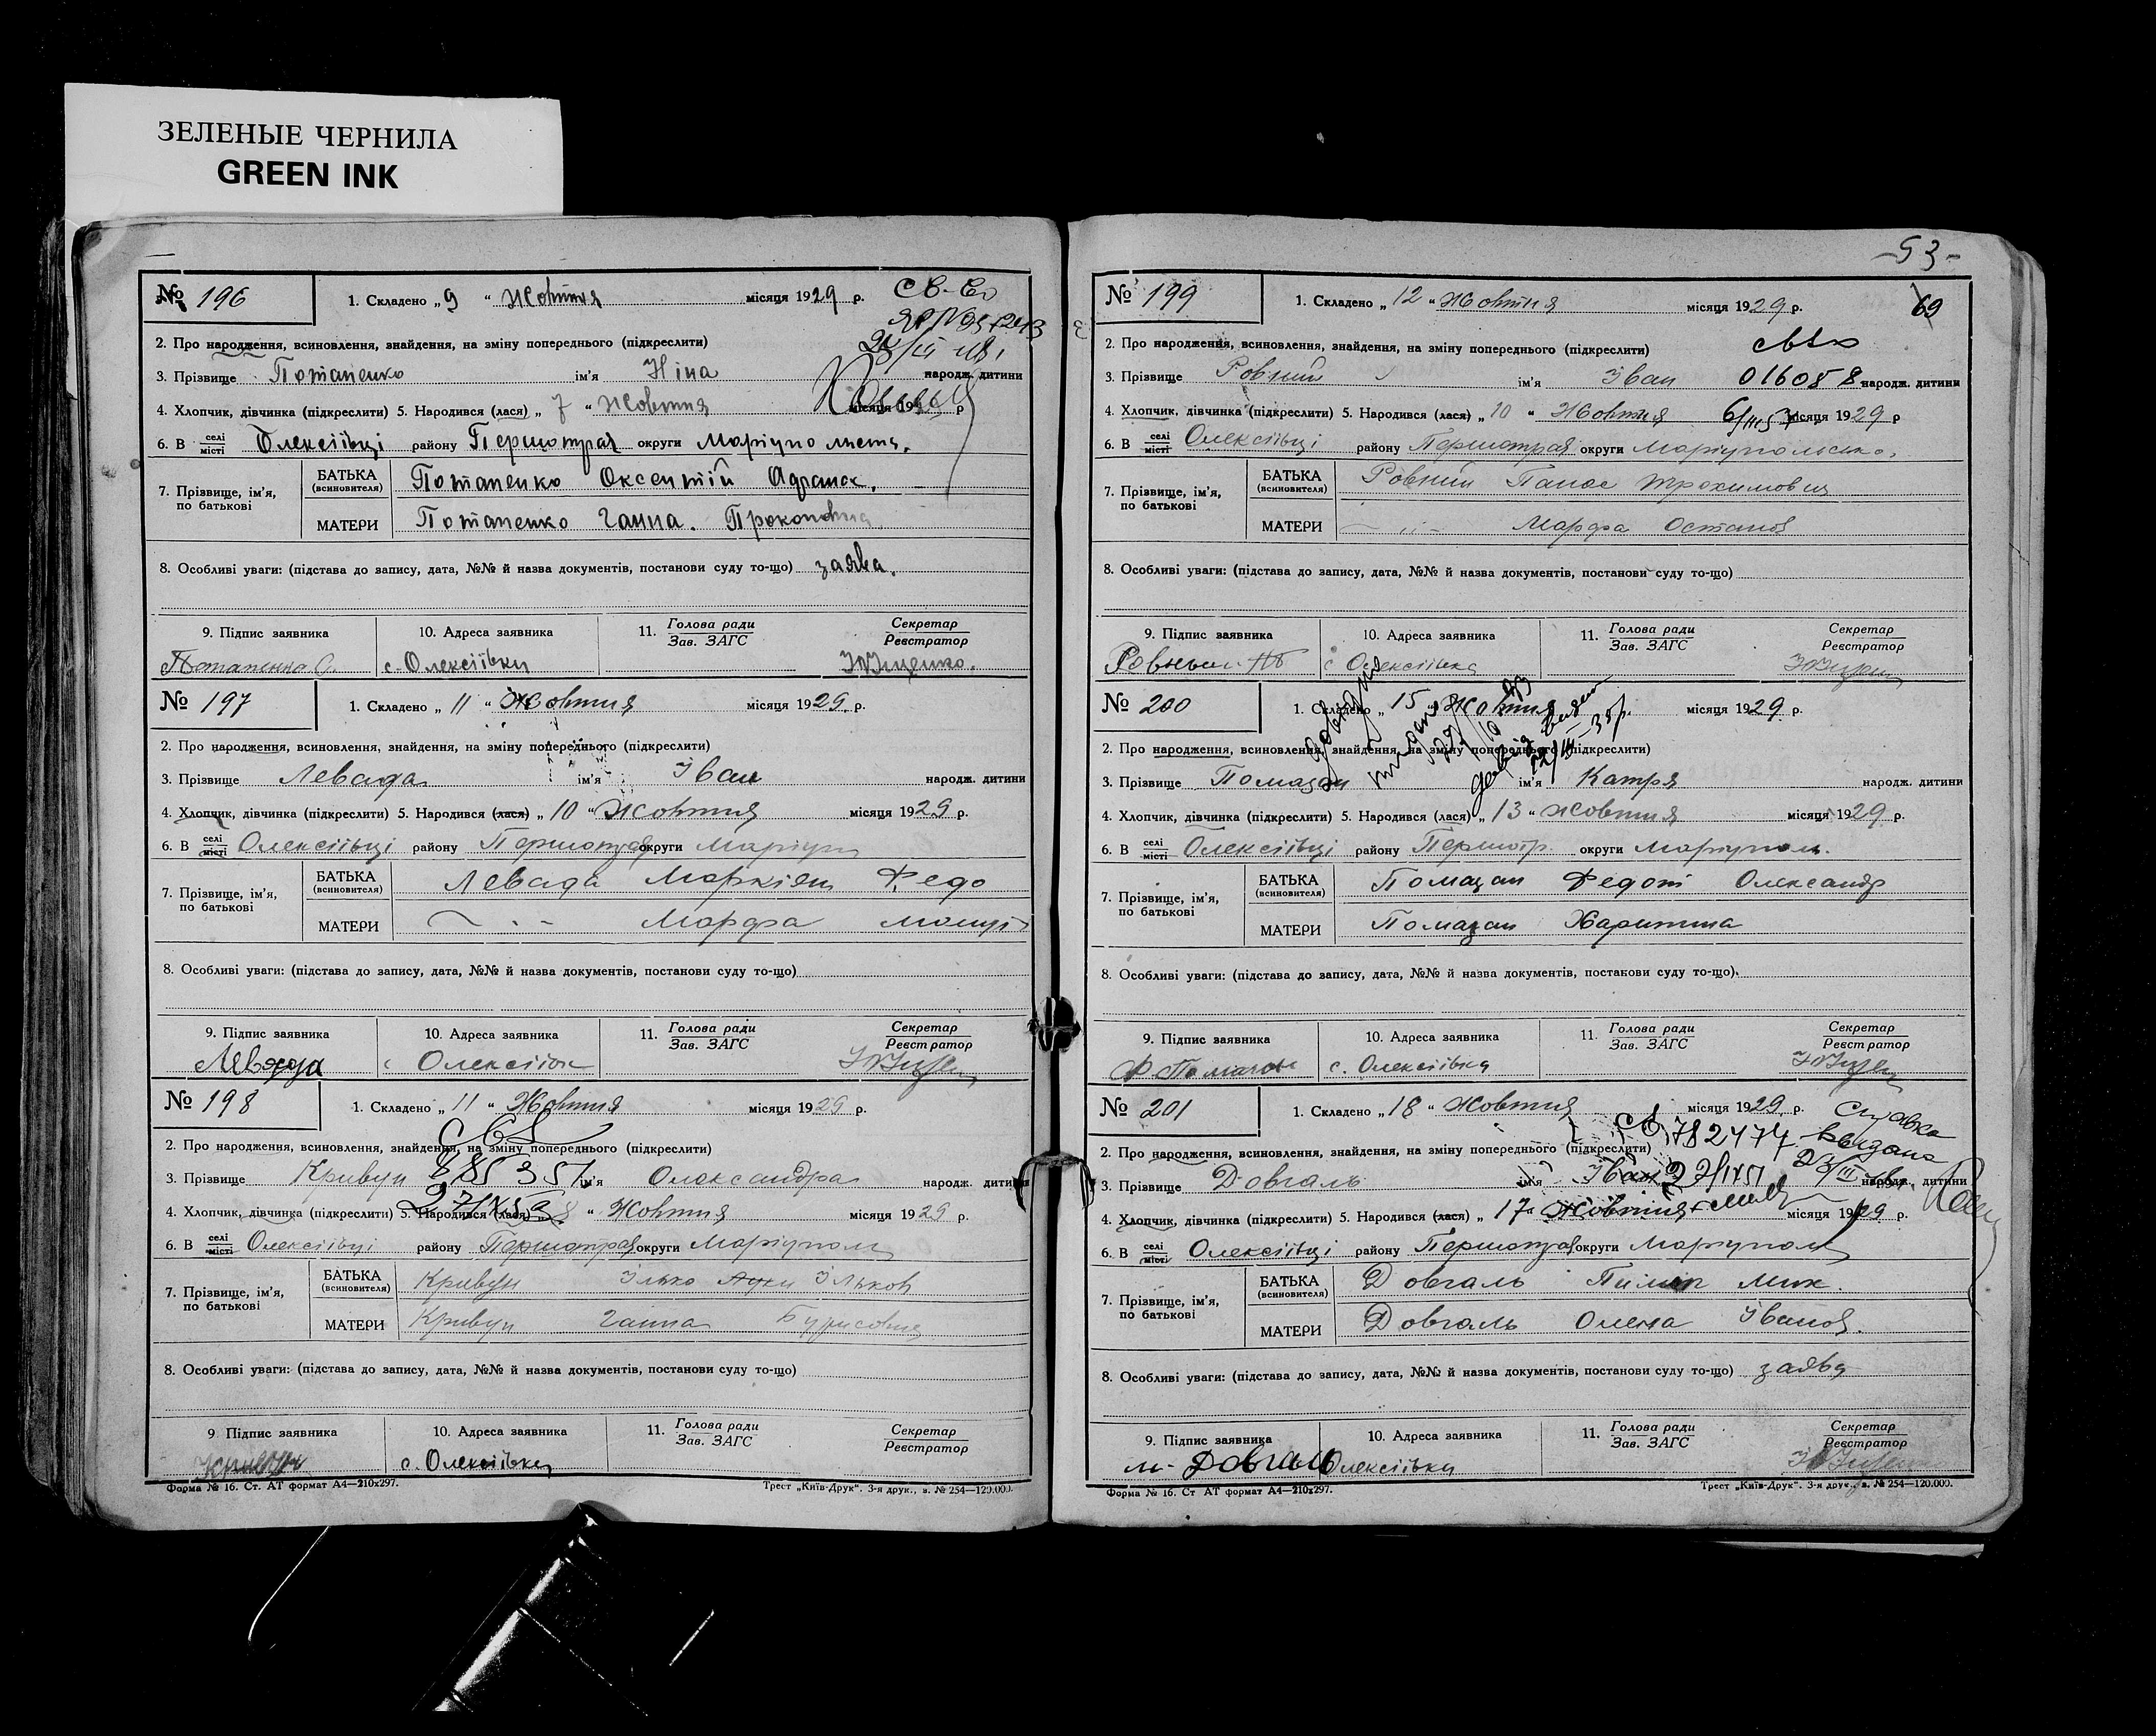 ЗЕЛЕНЫЕ ЧЕРНИЛА
GREEN INK
№ 196
1. Складено „ 9 “ Жовтня місяця 1929 р.
2. Про народження, всиновлення, знайдення, на зміну попереднього (підкреслити)
3. Прізвище Потапенко ім'я Ніна народж. дитини
4. Хлопчик, дівчинка (підкреслити) 5. Народився (лася) „ 7 “ Жовтня місяця 19 р
6. В селі місті Олексіївці району Першотрав округи Маріупольськ.
7. Прізвище, ім'я, по батькові
БАТЬКА (всиновителя) Потапенко Оксентій
МАТЕРИ Потапенко Ганна. Прокоповна
8. Особливі уваги: (підстава до запису, дата, №№ й назва документів, постанови суду то-що) заява.
9. Підпис заявника
10. Адреса заявника
11. Голова ради Зав. ЗАГС
Секретар Реєстратор
Потапенко О. с. Олексіївки
№ 197
1. Складено „ 11 “ Жовтня місяця 1929 р.
2. Про народження, всиновлення, знайдення, на зміну попереднього (підкреслити)
3. Прізвище Левада ім'я Іван народж. дитини
4. Хлопчик, дівчинка (підкреслити) 5. Народився (лася) „ 10 “ Жовтня місяця 1929 р.
6. В селі місті Олексіївці району Першотрав округи Маріуп
7. Прізвище, ім'я, по батькові
БАТЬКА (всиновителя) Левада Маркіян Федо
МАТЕРИ — „ — Марфа
8. Особливі уваги: (підстава до запису, дата, №№ й назва документів, постанови суду то-що)
9. Підпис заявника
10. Адреса заявника
11. Голова ради Зав. ЗАГС
Секретар Реєстратор
Левада с Олексіївк
№ 198
1. Складено „ 11 “ Жовтня місяця 1929 р.
2. Про народження, всиновлення, знайдення, на зміну попереднього (підкреслити)
3. Прізвище Кривун ім'я Олександра народж. дитини
4. Хлопчик, дівчинка (підкреслити) 5. Народився (лася) 8 “ Жовтня місяця 1929 р.
6. В селі місті Олексіївці району Першотрав округи Маріупол
7. Прізвище, ім'я, по батькові
БАТЬКА (всиновителя) Кривун Ілько Ільков
МАТЕРИ Кривун Ганна
8. Особливі уваги: (підстава до запису, дата, №№ й назва документів, постанови суду то-що)
9. Підпис заявника
10. Адреса заявника
11. Голова ради Зав. ЗАГС
Секретар Реєстратор
Кривун с. Олексіївки
Форма № 16. Ст. АТ формат А4—210х297. Трест „Київ-Друк“. 3-я друк., з. № 254—120.000.
-53-
69
№ 199
1. Складено „ 12 “ Жовтня місяця 1929 р.
2. Про народження, всиновлення, знайдення, на зміну попереднього (підкреслити)
3. Прізвище Ровний ім'я Іван 016088 народж. дитини
4. Хлопчик, дівчинка (підкреслити) 5. Народився (лася) „ 10 “ Жовтня місяця 1929 р
6. В селі місті Олексіївці району Першотрав округи Маріупольсько.
7. Прізвище, ім'я, по батькові
БАТЬКА (всиновителя) Ровний Панас Трохимович
МАТЕРИ — „ — Марфа Остапов
8. Особливі уваги: (підстава до запису, дата, №№ й назва документів, постанови суду то-що)
9. Підпис заявника
10. Адреса заявника
11. Голова ради Зав. ЗАГС
Секретар Реєстратор
с Олексіївка
№ 200
1. Складено „ 15 “ Жовтня місяця 1929 р.
2. Про народження, всиновлення, знайдення, на зміну попереднього (підкреслити)
3. Прізвище Помазан ім'я Катря народж. дитини
4. Хлопчик, дівчинка (підкреслити) 5. Народився (лася) „ 13 “ Жовтня місяця 1929 р.
6. В селі місті Олексіївці району Першотр. округи Маріупол.
7. Прізвище, ім'я, по батькові
БАТЬКА (всиновителя) Помазан Федот Олександр
МАТЕРИ Помазан Харитина
8. Особливі уваги: (підстава до запису, дата, №№ й назва документів, постанови суду то-що).
9. Підпис заявника
10. Адреса заявника
11. Голова ради Зав. ЗАГС
Секретар Реєстратор
Ф Помазан с. Олексіївка
№ 201
1. Складено „ 18 “ Жовтня місяця 1929 р. Справка
2. Про народження, всиновлення, знайдення, на зміну попереднього (підкреслити) 782474
3. Прізвище Довгаль ім'я Іван народж. дитини
4. Хлопчик, дівчинка (підкреслити) 5. Народився (лася) „ 17 “ Жовтня місяця 1929 р.
6. В селі місті Олексіївці району Першотрав округи Маріупол
7. Прізвище, ім'я, по батькові
БАТЬКА (всиновителя) Довгаль Пилип Мик.
МАТЕРИ Довгаль Олена Іванов.
8. Особливі уваги: (підстава до запису, дата, №№ й назва документів, постанови суду то-що) заява
9. Підпис заявника
10. Адреса заявника
11. Голова ради Зав. ЗАГС
Секретар Реєстратор
Довгаль Олексіївки
Форма № 16. Ст АТ формат А4—210х297. Трест „Київ-Друк“. 3-я друк., з. № 254—120.000.